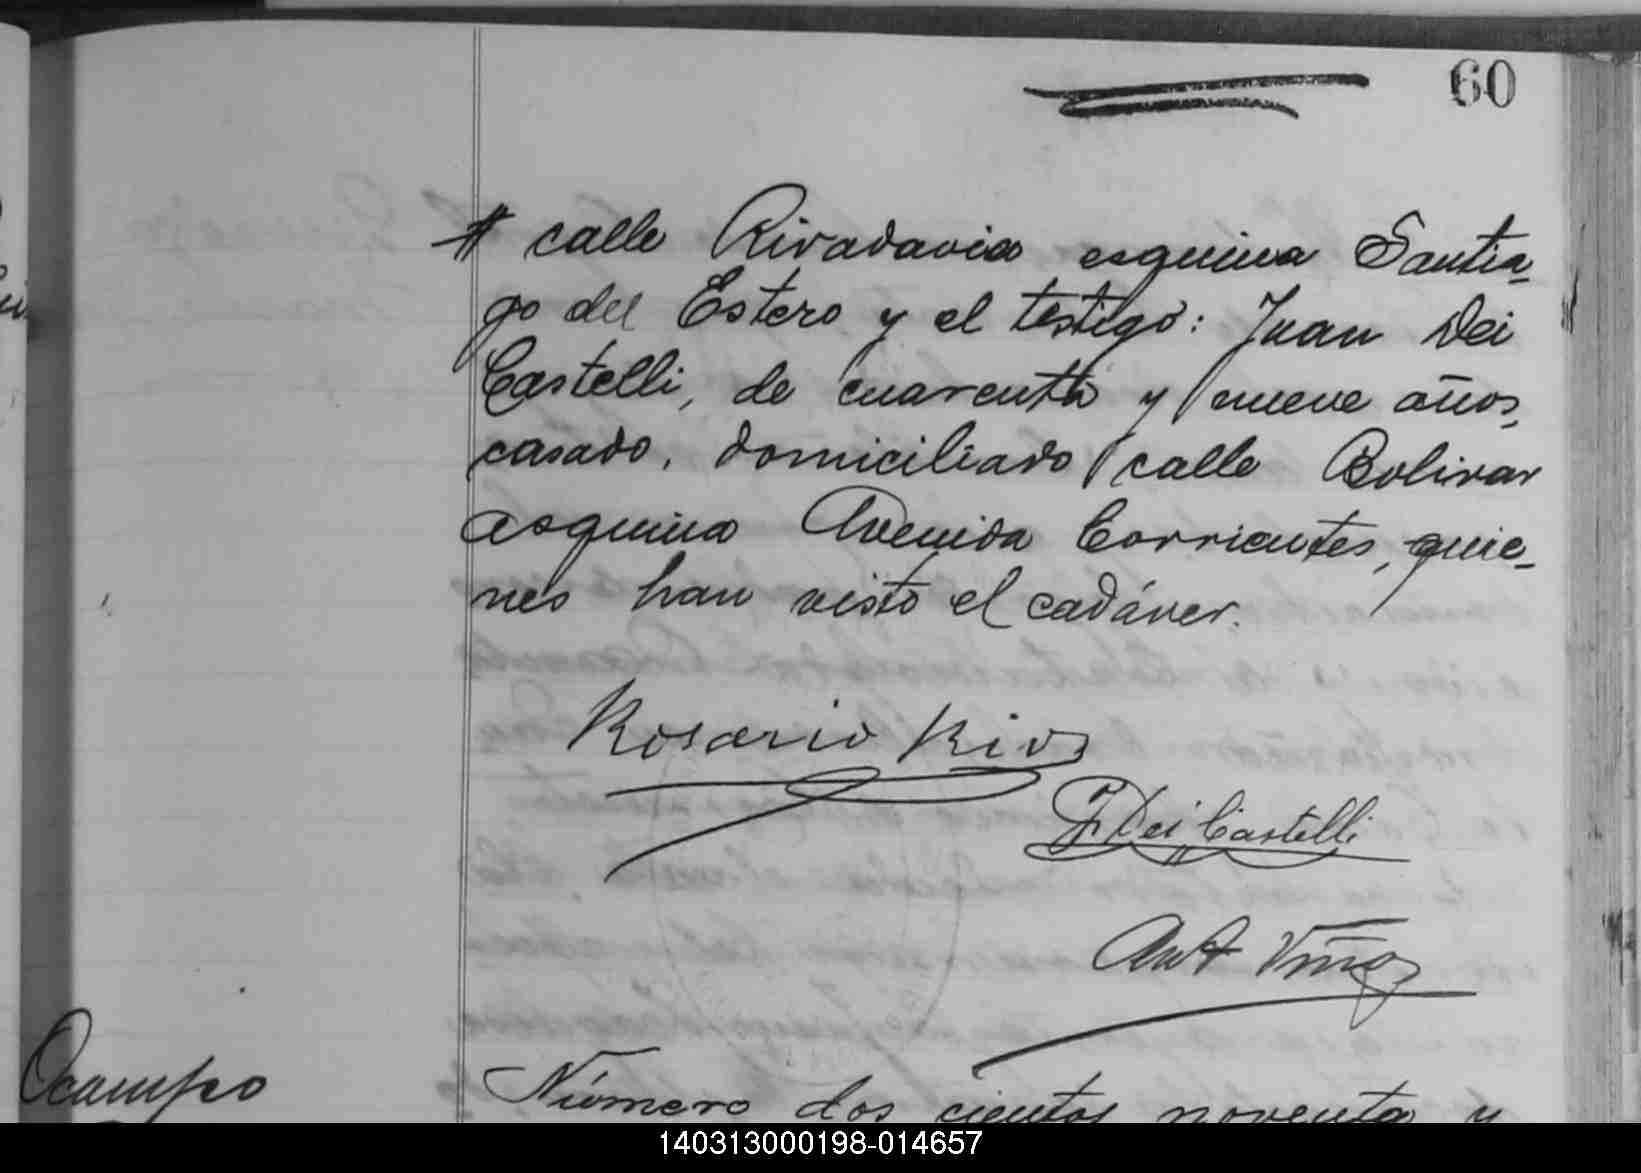 60
calle Rivadavia esquina Santia-
go del Estero y el testigo: Juan Dei
Castelli, de cuarenta y nueve años,
casado, domiciliado calle Bolivar
esquina Avenida Corrientes, quie-
nes han visto el cadáver.
Rosario Rios
J Dei Castelli
Ant
Ocampo
Número dos cientos noventa y
140313000198-014657